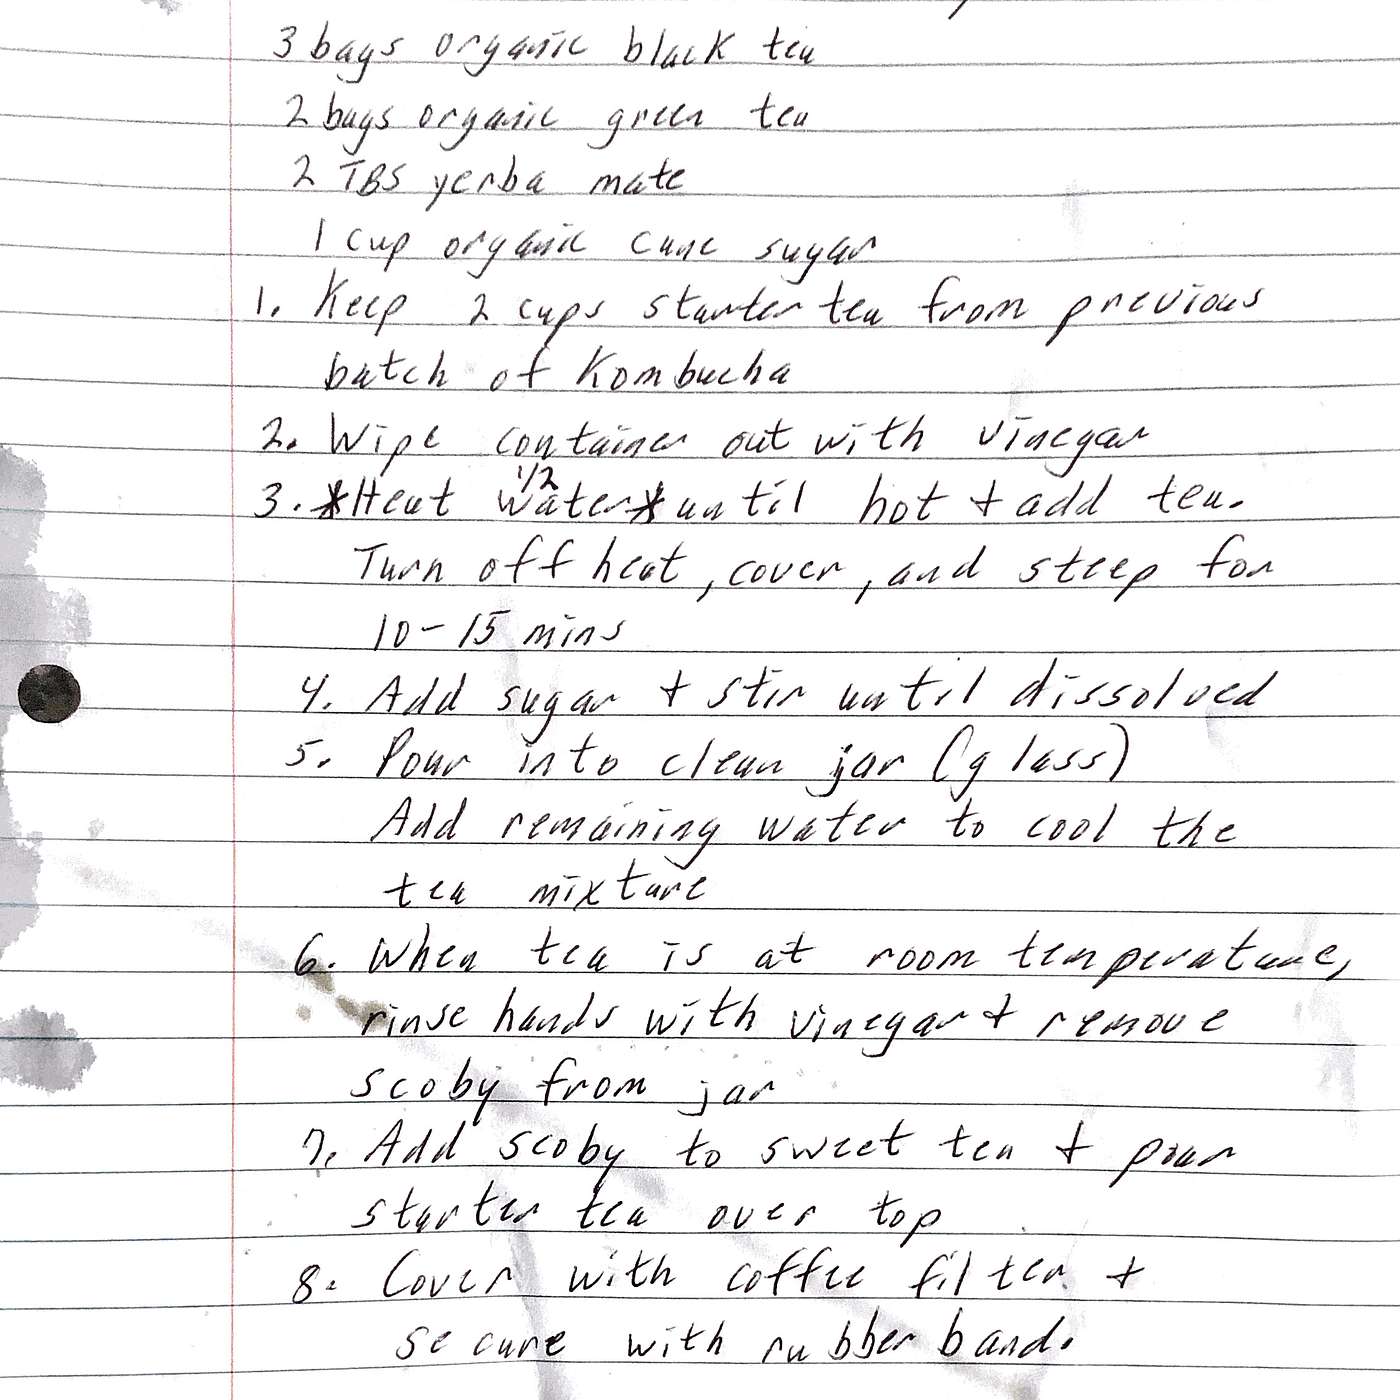 3 bags organic black tea
2 bags organic green tea
2 TBS yerba mate
1 cup organic cane sugar
1. Keep 2 cups starter tea from previous
batch of Kombucha
2. Wipe container out with vinegar
3. *Heat 1/2 water* until hot + add tea.
Turn off heat, cover, and steep for
10-15 mins
4. Add sugar + stir until dissolved
5. Pour into clean jar (glass)
Add remaining water to cool the
tea mixture
6. When tea is at room temperature,
rinse hands with vinegar + remove
scoby from jar
7. Add scoby to sweet tea + pour
starter tea over top
8. Cover with coffee filter +
secure with rubber band.